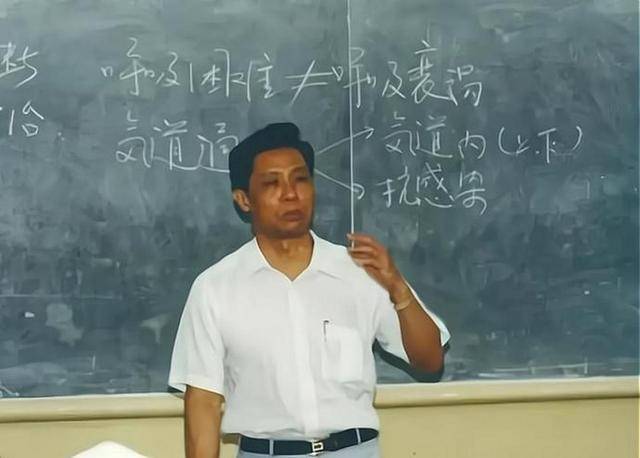 呼吸困难≠呼吸衰竭
治 气道通 气道内(上.下)
抗感染